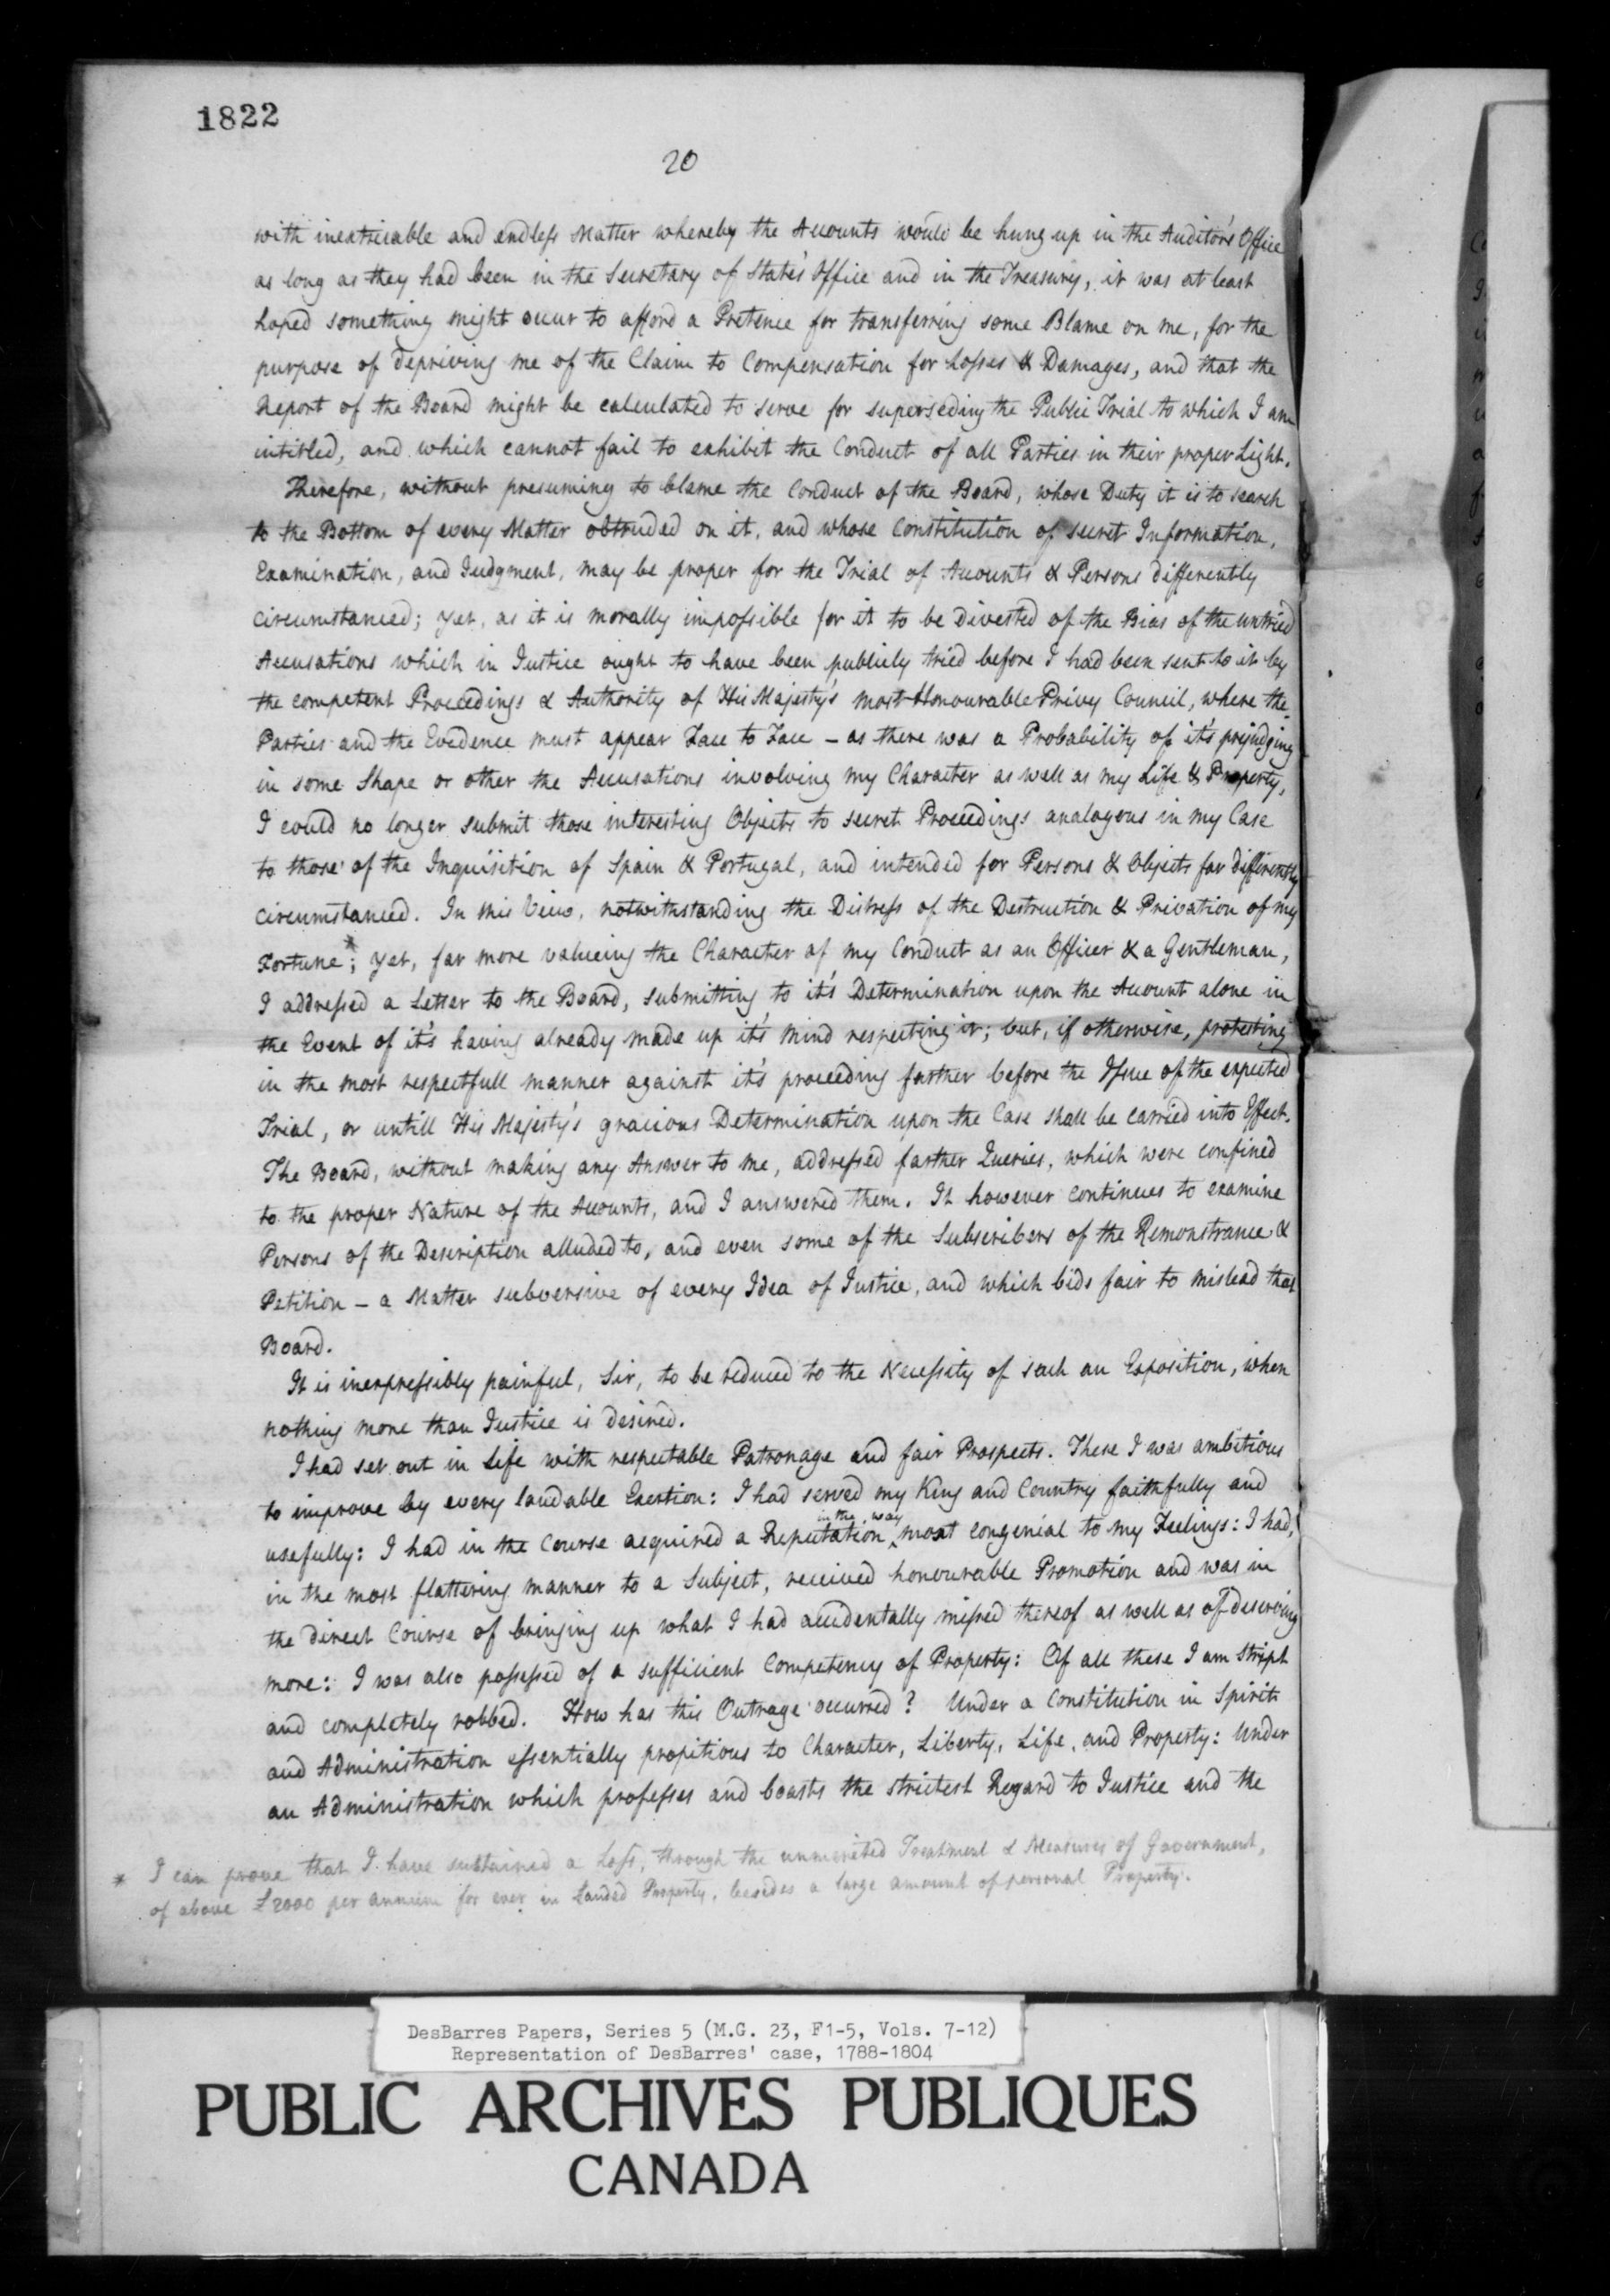 1822
20
with inextricable and endless Matter whereby the Accounts would be hung up in the Auditor's Office
as long as they had been in the Secretary of State's Office and in the Treasury, it was at least
hoped something might occur to afford a Pretence for transferring some Blame on me, for the
purpose of depriving me of the Claim to Compensation for Losses & Damages, and that the
Report of the Board might be calculated to serve for superseding the Public Trial to which I am
intitled, and which cannot fail to exhibit the Conduct of all Parties in their proper Light.
Therefore, without presuming to blame the Conduct of the Board, whose Duty it is to search
to the Bottom of every Matter obtruded on it, and whose Constitution of secret Information,
Examination, and Judgment, may be proper for the Trial of Accounts & Persons differently
circumstanced; yet, as it is morally impossible for it to be divested of the Bias of the untried
Accusations which in Justice ought to have been publicly tried before I had been sent to it by
the competent Proceedings & Authority of His Majesty's most Honourable Privy Council, where the
Parties and the Evidence must appear Face to Face – as there was a Probability of it's prejudging
in some Shape or other the Accusations involving my Character as well as my Life & Property,
I could no longer submit those interesting Objects to secret Proceedings analogous in my Case
to those of the Inquisition of Spain & Portugal, and intended for Persons & Objects far differently
circumstanced. In this View, notwithstanding the Distress of the Destruction & Privation of my
Fortune*; yet, far more valueing the Character of my Conduct as an Officer & a Gentleman,
I addressed a Letter to the Board, submitting to it's Determination upon the Account alone in
the Event of it's having already made up it's Mind respecting it; but, if otherwise, protesting
in the most respectfull manner against it's proceeding farther before the Issue of the expected
Trial, or untill His Majesty's gracious Determination upon the Case shall be carried into Effect.
The Board, without making any Answer to me, addressed farther Queries, which were confined
to the proper Nature of the Accounts, and I answered them. It however continues to examine
Persons of the Description alluded to, and even some of the Subscribers of the Remonstrance &
Petition – a Matter subversive of every Idea of Justice, and which bids fair to mislead that
Board.
It is inexpressibly painful, Sir, to be reduced to the Necessity of such an Exposition, when
nothing more than Justice is desired.
I had set out in Life with respectable Patronage and fair Prospects. These I was ambitious
to improve by every laudable Exertion: I had served my King and Country faithfully and
in the way
usefully: I had in the Course acquired a Reputation ‸ most congenial to my Feelings: I had,
in the most flattering manner to a Subject, received honourable Promotion and was in
the direct Course of bringing up what I had accidentally missed thereof as well as of deserving
more: I was also possessed of a sufficient Competency of Property: Of all these I am stript
and completely robbed. How has this Outrage occurred? Under a Constitution in Spirit
and Administration essentially propitious to Character, Liberty, Life, and Property: Under
an Administration which professes and boasts the strictest Regard to Justice and the
* I can prove that I have sustained a Loss, through the unmerited Treatment & Measures of Government,
of above £2000 per annum for ever in Landed Property, besides a large amount of personal Property.
DesBarres Papers, Series 5 (M.G. 23, F1-5, Vols. 7-12)
Representation of DesBarres' case, 1788-1804
PUBLIC ARCHIVES PUBLIQUES
CANADA